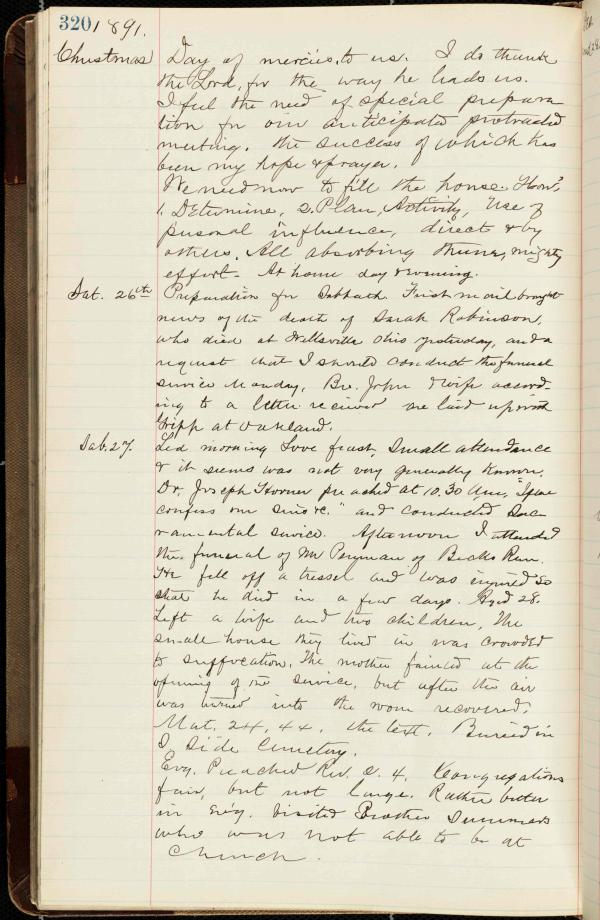 320 1891.
Christmas Day of mercies to us. I do thank
the Lord, for the way he leads us.
I feel the need of special prepara
tion for our anticipated protracted
meeting, the success of which has
been my hope & prayer.
We need now to fill the house. How?
1. Determine, 2. Plan, Activity, Use of
personal influence, direct & by
others. All absorbing theme, mighty
effort. At home day & evening.
Sat. 26th Preparation for Sabbath. First mail brought
news of the death of Sarah Robinson,
who died at Wellsville Ohio yesterday, and a
request that I should conduct the funeral
service Monday, Bro. John & wife accord-
ing to a letter received are laid up with
Gripp at Oakland.
Sab. 27. Led morning Love feast, Small attendance
& it seems was not very generally known.
Dr. Joseph Horner preached at 10.30 Am, "If we
confess our sins &c." and conducted Sac
ramental service. Afternoon I attended
the funeral of Mr Penman of Becks Run.
He fell off a tressel and was injured so
that he died in a few days. Aged 28.
Left a wife and two children, The
small house they lived in was crowded
to suffocation. The mother fainted at the
opening of the service, but after the air
was turned into the room recovered.
Mat. 24, 44, the text. Buried in
S. Side Cemetery.
Evg. Preached Rev. 2. 4. Congregations
fair, but not large. Rather better
in ev'g. Visited Brother Summers
who was not able to be at
Church.